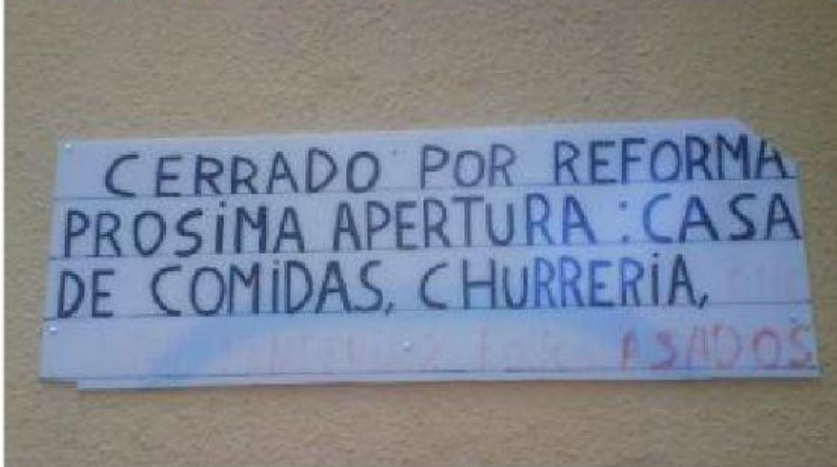 CERRADO POR REFORMA
PROSiMA APERTURA : CASA
DE COMiDAS, CHURRERiA,
ASADOS